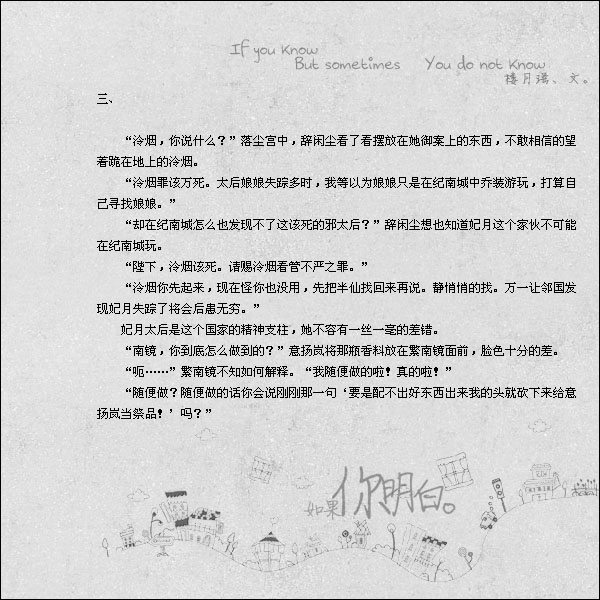 If you Know
But sometimes You do not Know
楼月瑶、文。
三、
“泠烟，你说什么？”落尘宫中，辞闲尘看了看摆放在她御案上的东西，不敢相信的望
着跪在地上的泠烟。
“泠烟罪该万死。太后娘娘失踪多时，我等以为娘娘只是在纪南城中乔装游玩，打算自
己寻找娘娘。”
“却在纪南城怎么也发现不了这该死的邪太后？”辞闲尘想也知道妃月这个家伙不可能
在纪南城玩。
“陛下，泠烟该死。请赐泠烟看管不严之罪。”
“泠烟你先起来，现在怪你也没用，先把半仙找回来再说。静悄悄的找。万一让邻国发
现妃月失踪了将会后患无穷。”
妃月太后是这个国家的精神支柱，她不容有一丝一毫的差错。
“南镜，你到底怎么做到的？”意扬岚将那瓶香料放在繁南镜面前，脸色十分的差。
“呃……”繁南镜不知如何解释。“我随便做的啦！真的啦！”
“随便做？随便做的话你会说刚刚那一句‘要是配不出好东西出来我的头就砍下来给意
扬岚当祭品！’吗？”
如果你明白。